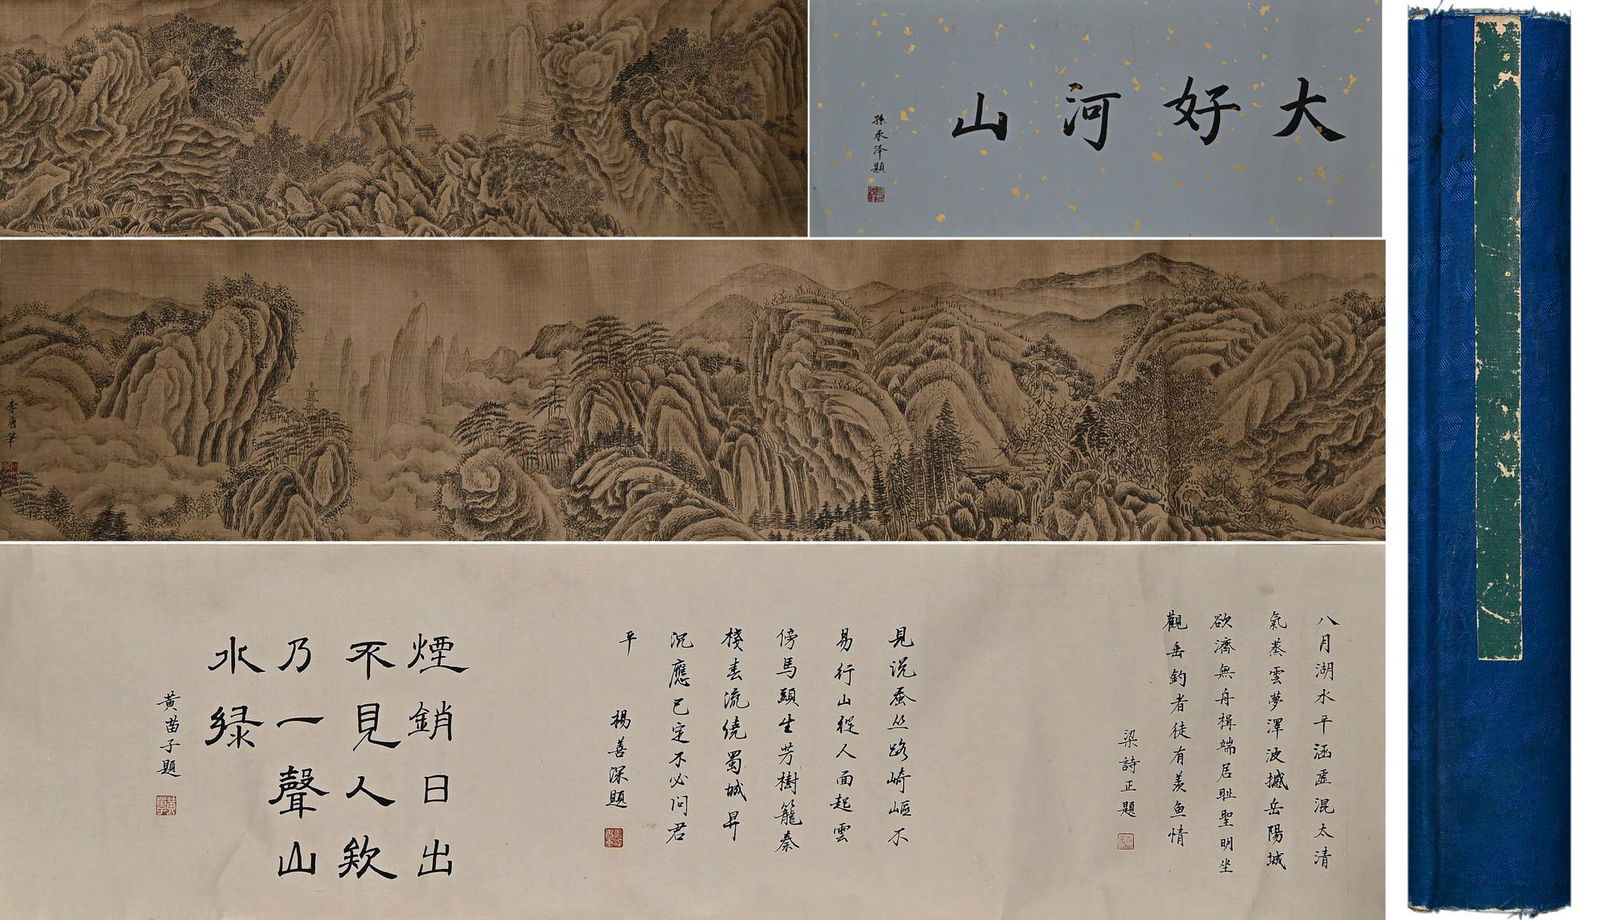 大好河山
孫承澤題
李唐筆
八月湖水平涵虛混太清
氣蒸雲夢澤波撼岳陽城
欲濟無舟楫端居恥聖明坐
觀垂釣者徒有羨魚情
梁詩正題
見說蚕丛路崎嶇不
易行山從人面起雲
傍馬頭生芳樹籠秦
棧春流繞蜀城昇
沉應已定不必问君
平
楊善深題
煙銷日出
不見人欸
乃一聲山
水緑
黃苗子題